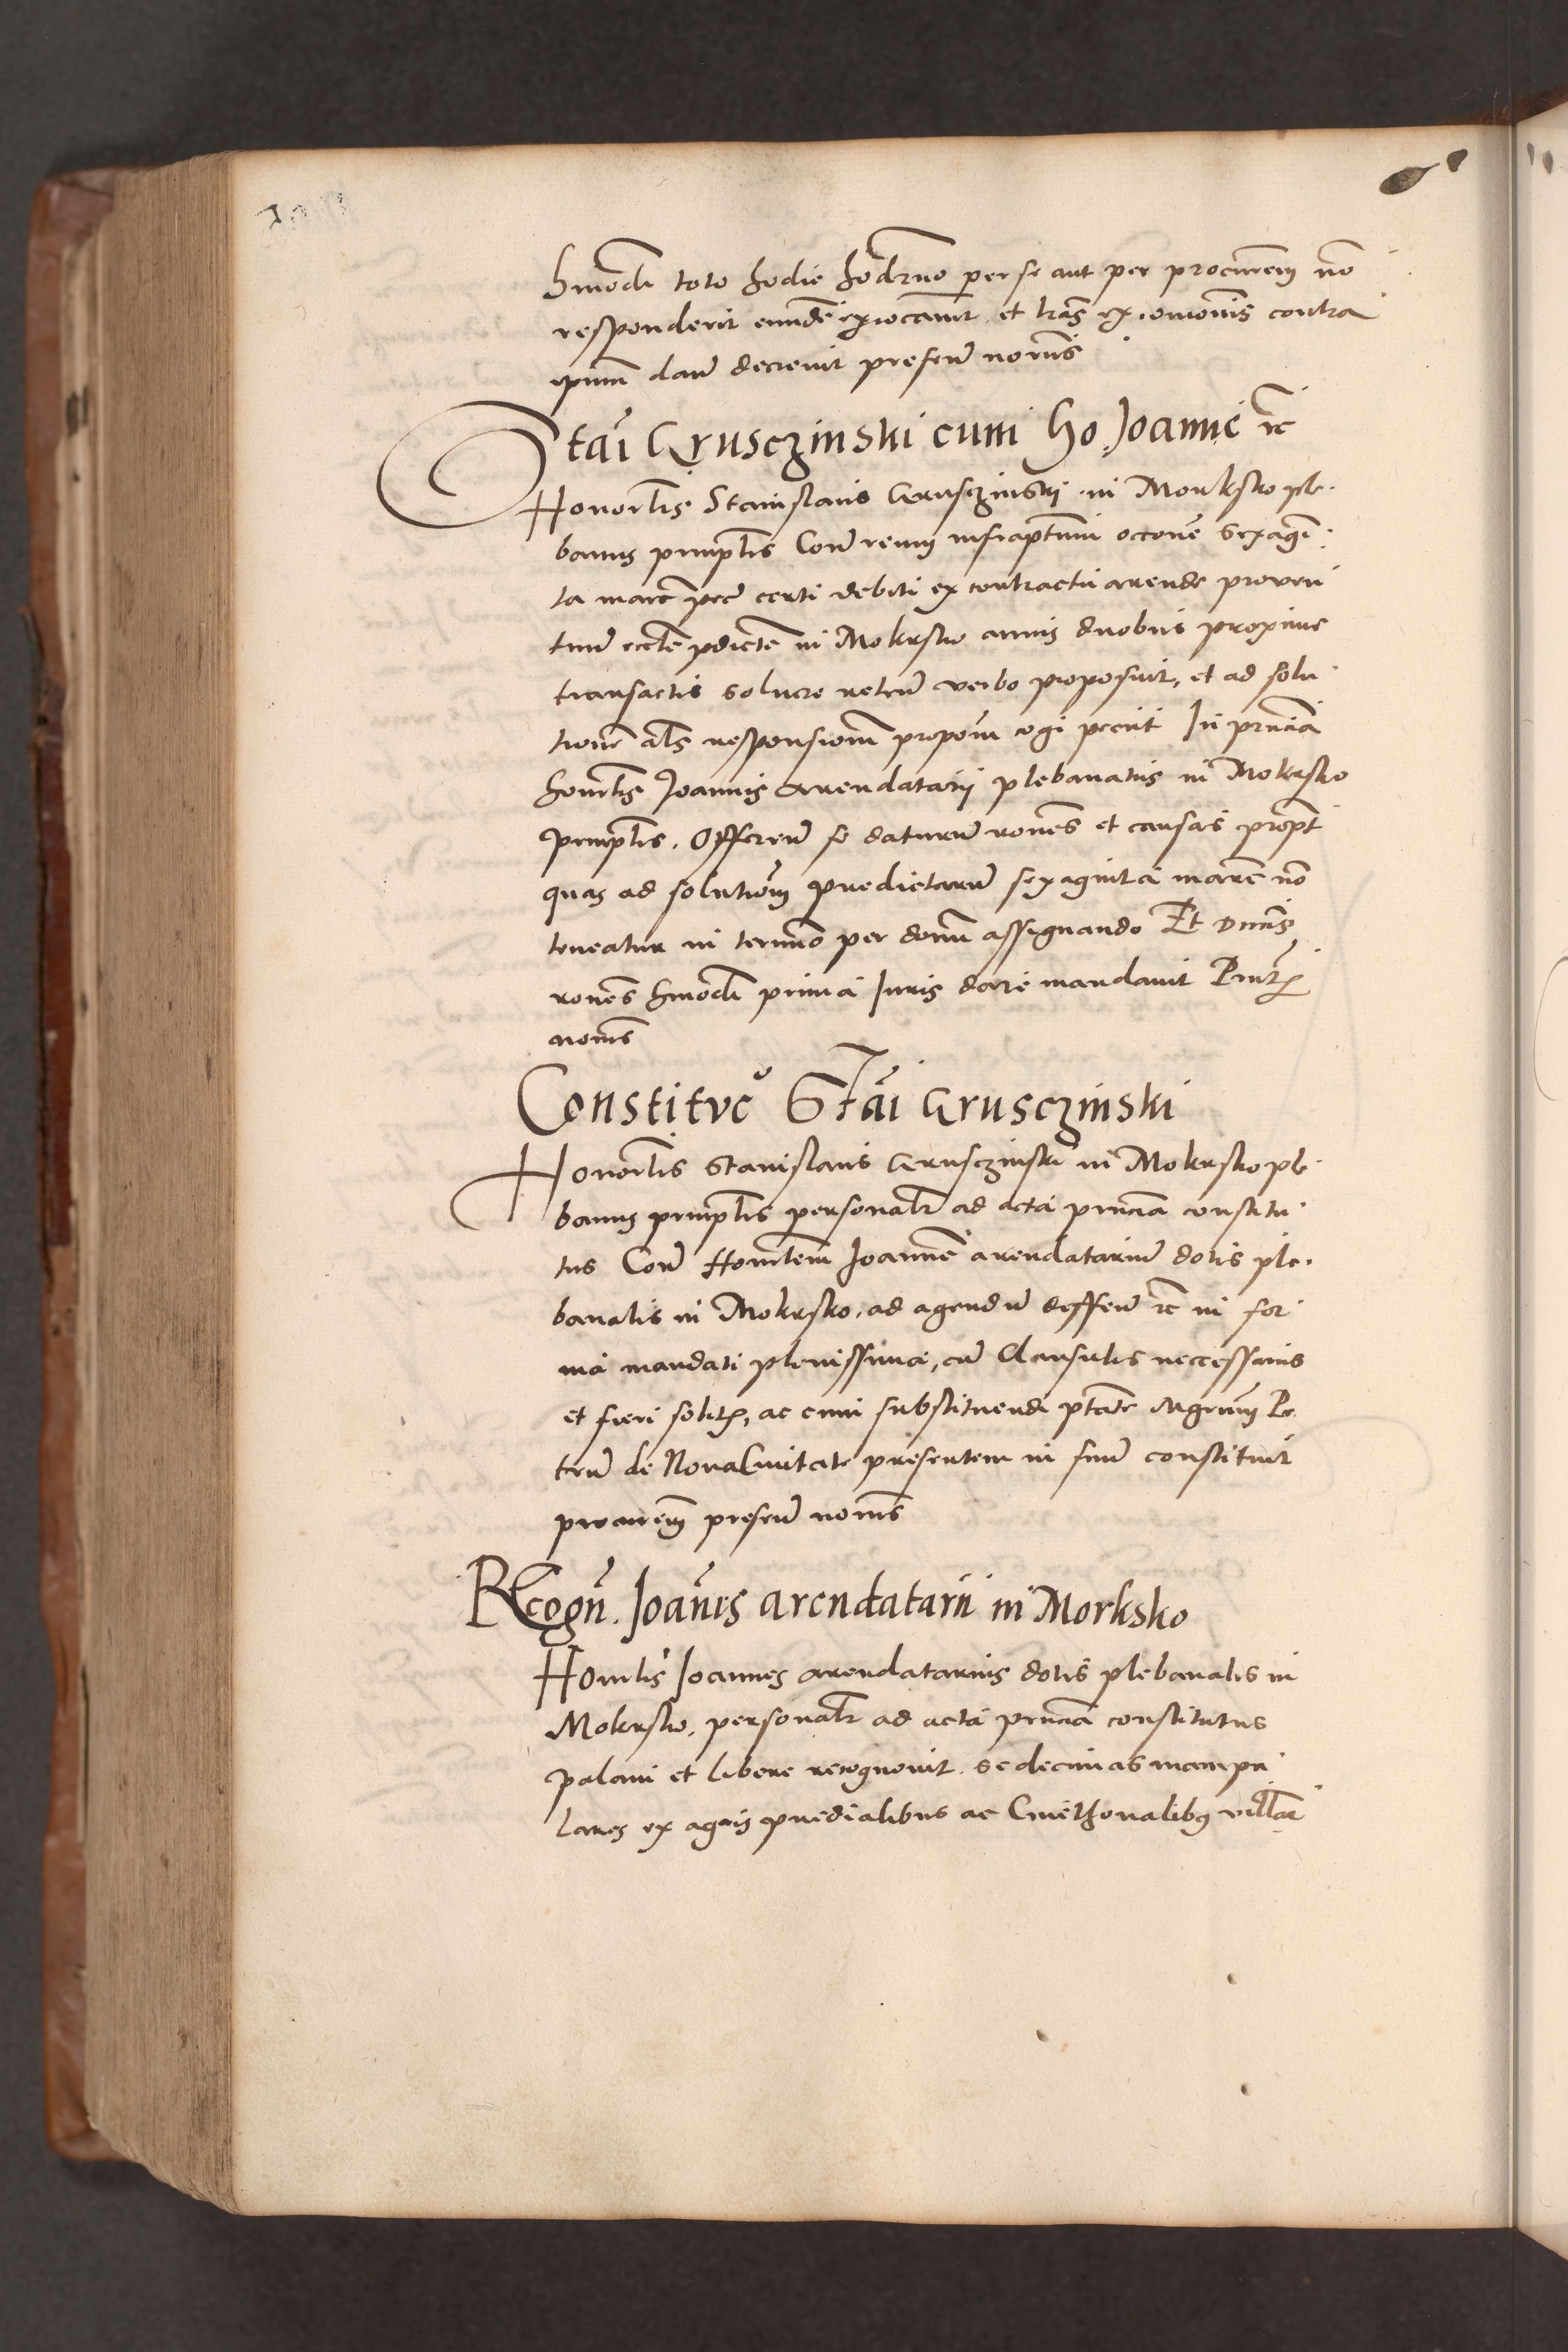 hmodi toto hodie hodierno per se aut per procurem no
responderit eundem excoicavit et lras excoionis contra
ipsum dari decrevit presen norijs
Stai Grusczinski cum ho. Joanne rc
Honorlis Stanislaus Grusczinski in Morksko ple
banus prinplis Con reum infrascriptum occone sexagi
ta marc pec certi debiti ex contractu arende proven
tuum eccle pdicte in Mokrsko annis duobus proxime
transactis solvere reten verbo proposuit, et ad solu
tione als responsionem propom cogi peciit In prncia
honorlis Joannis arendatarij plebanatus in Mokrsko
prinplis. Offeren se daturum rones et causas propt
quas ad solutiom predictarum sexaginta marc no
teneatur in termino per dnum assignando Et Dnus
rones hmodi prima Juris dare mandavit Pntibus
notarijs
Constituc Stai Grusczinski
Honorlis Stanislaus Grusczinski in Mokrsko ple
banus prinplis personalr ad acta prncia constitu
tus Con Honorlem Joannem arendatarium dotis ple
banalis in Mokrsko, ad agendum deffen rc in for
ma mandati plenissima, cum Clausulis necessarijs
et fieri solitis, ac cum substituendi ptate Mgrum Pe
trum de Nova Civitate presentem in suum constituit
procurem presen norijs
Recogn. Joanis arendatarii in Morksko
Honorlis Joannes arendatarius dotis plebanalis in
Mokrsko, personalr ad acta prncia constitutus
palam et libere recognovit se decimas manipu
lares ex agris predialibus ac Cmethonalibus villar